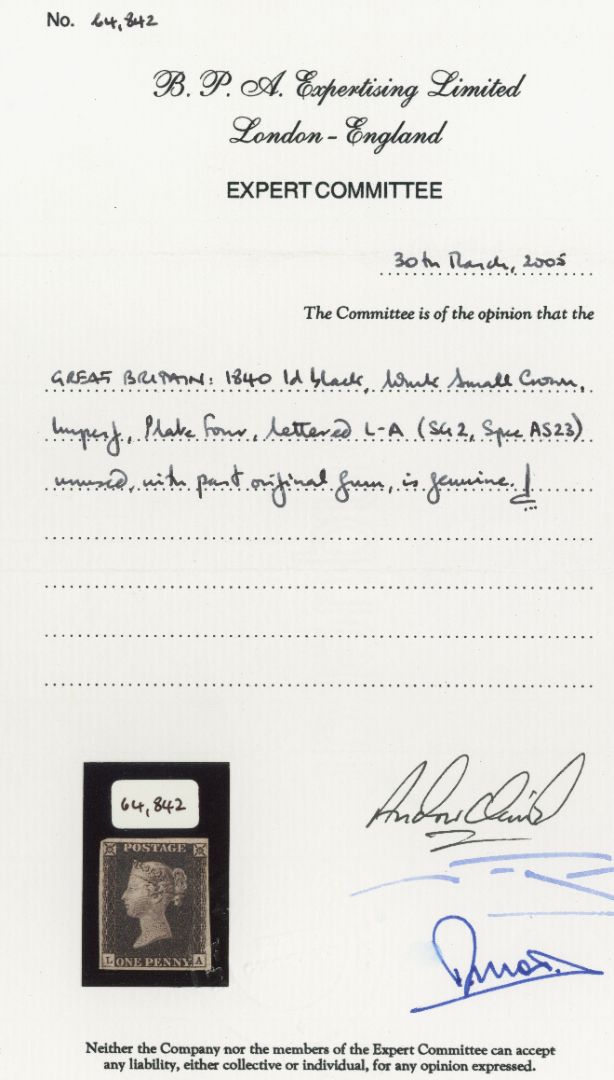 No. 64,842
B. P. A. Expertising Limited
London - England
EXPERT COMMITTEE
30th March, 2005
The Committee is of the opinion that the
GREAT BRITAIN: 1840 1d black, Wmk Small Crown,
Imperf, Plate Four, lettered L-A (SG2, Spec AS23)
unused, with part original gum, is genuine.
64,842
POSTAGE
L ONE PENNY A
Neither the Company nor the members of the Expert Committee can accept
any liability, either collective or individual, for any opinion expressed.